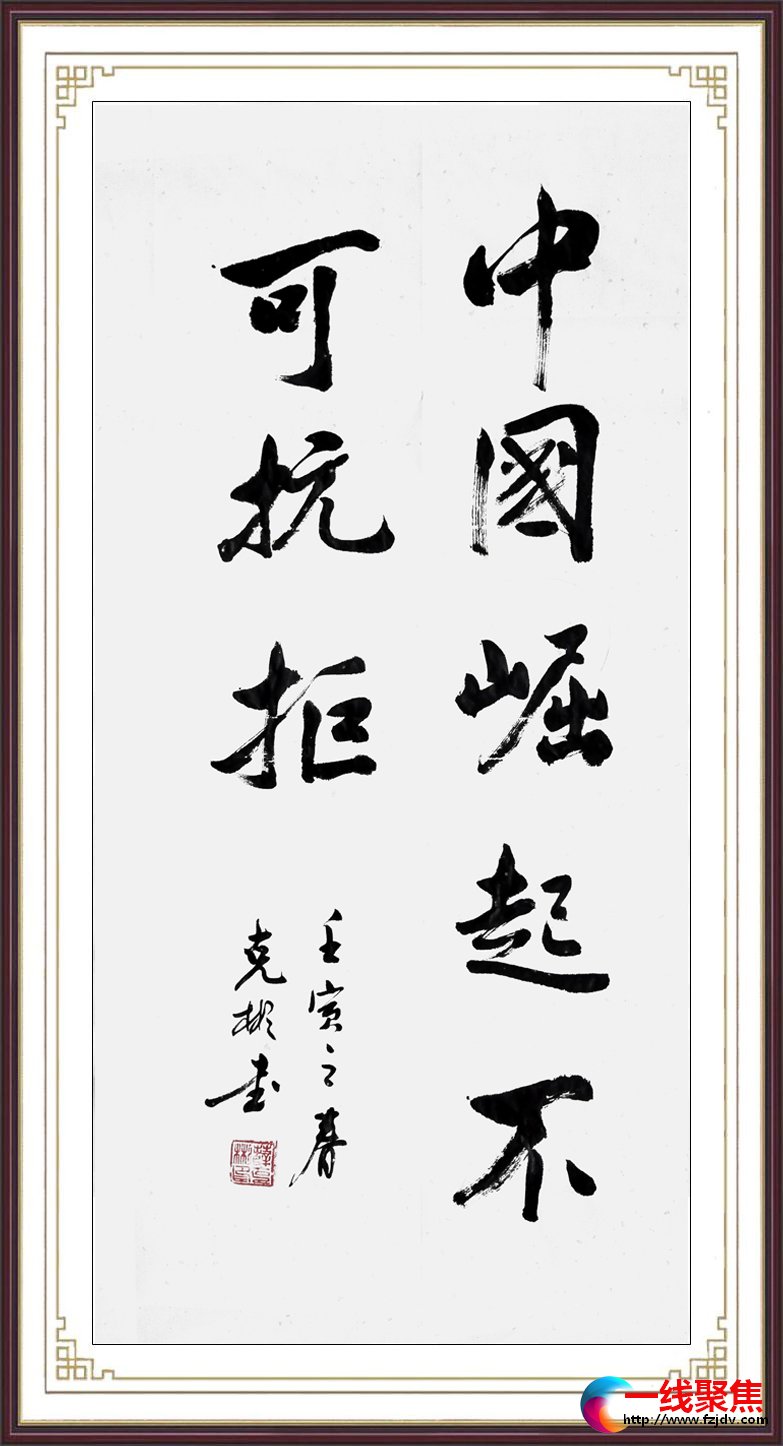 中國崛起不
可抗拒
壬寅之春
克彬書
一线聚焦
http://www.fzjdv.com